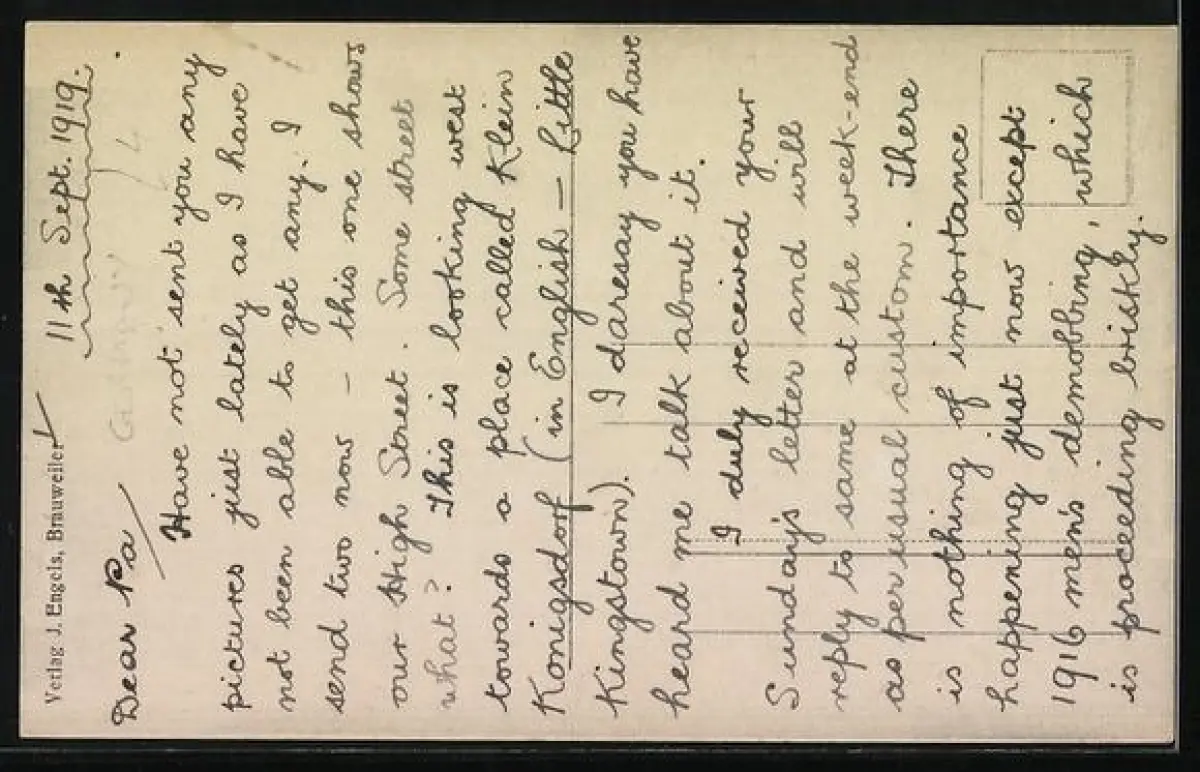 Verlag J. Engels, Brauweiler
11th Sept. 1919.
Dear Pa
Have not sent you any
pictures just lately as I have
not been able to get any. I
send two now - this one shows
our High Street. Some street
what? This is looking west
towards a place called Klein
Konigsdorf (in English - Little
Kingstown). I daresay you have
heard me talk about it.
I duly received your
Sunday's letter and will
reply to same at the week-end
as per usual custom. There
is nothing of importance
happening just now except
1916 men's demobbing, which
is proceeding briskly.